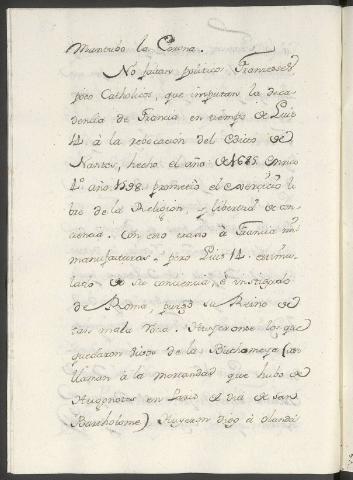 la Corona.
No faltan politicos Franceses
poco Catholicos, que imputan la deca
dencia de Francia en tiempo de Luis
14 à la rebocacion del Edicto de
Nantes, hecho el año de 1685. Enrico
4.º año 1598. prometiò el exercicio li
bre de la Religion, y libertad de con
ciencia. Con esto ganò à Francia mil
manufacturas. pero Luis 14. estimu
lado de su conciencia, è instigado
de Roma, purgò su Reino de
tan mala Los que
quedaron de la (asi
llaman à la mortandad que hubo de
Hugonotes en Paris el dia de San
Bartholome) Huyeron digo à Olanda